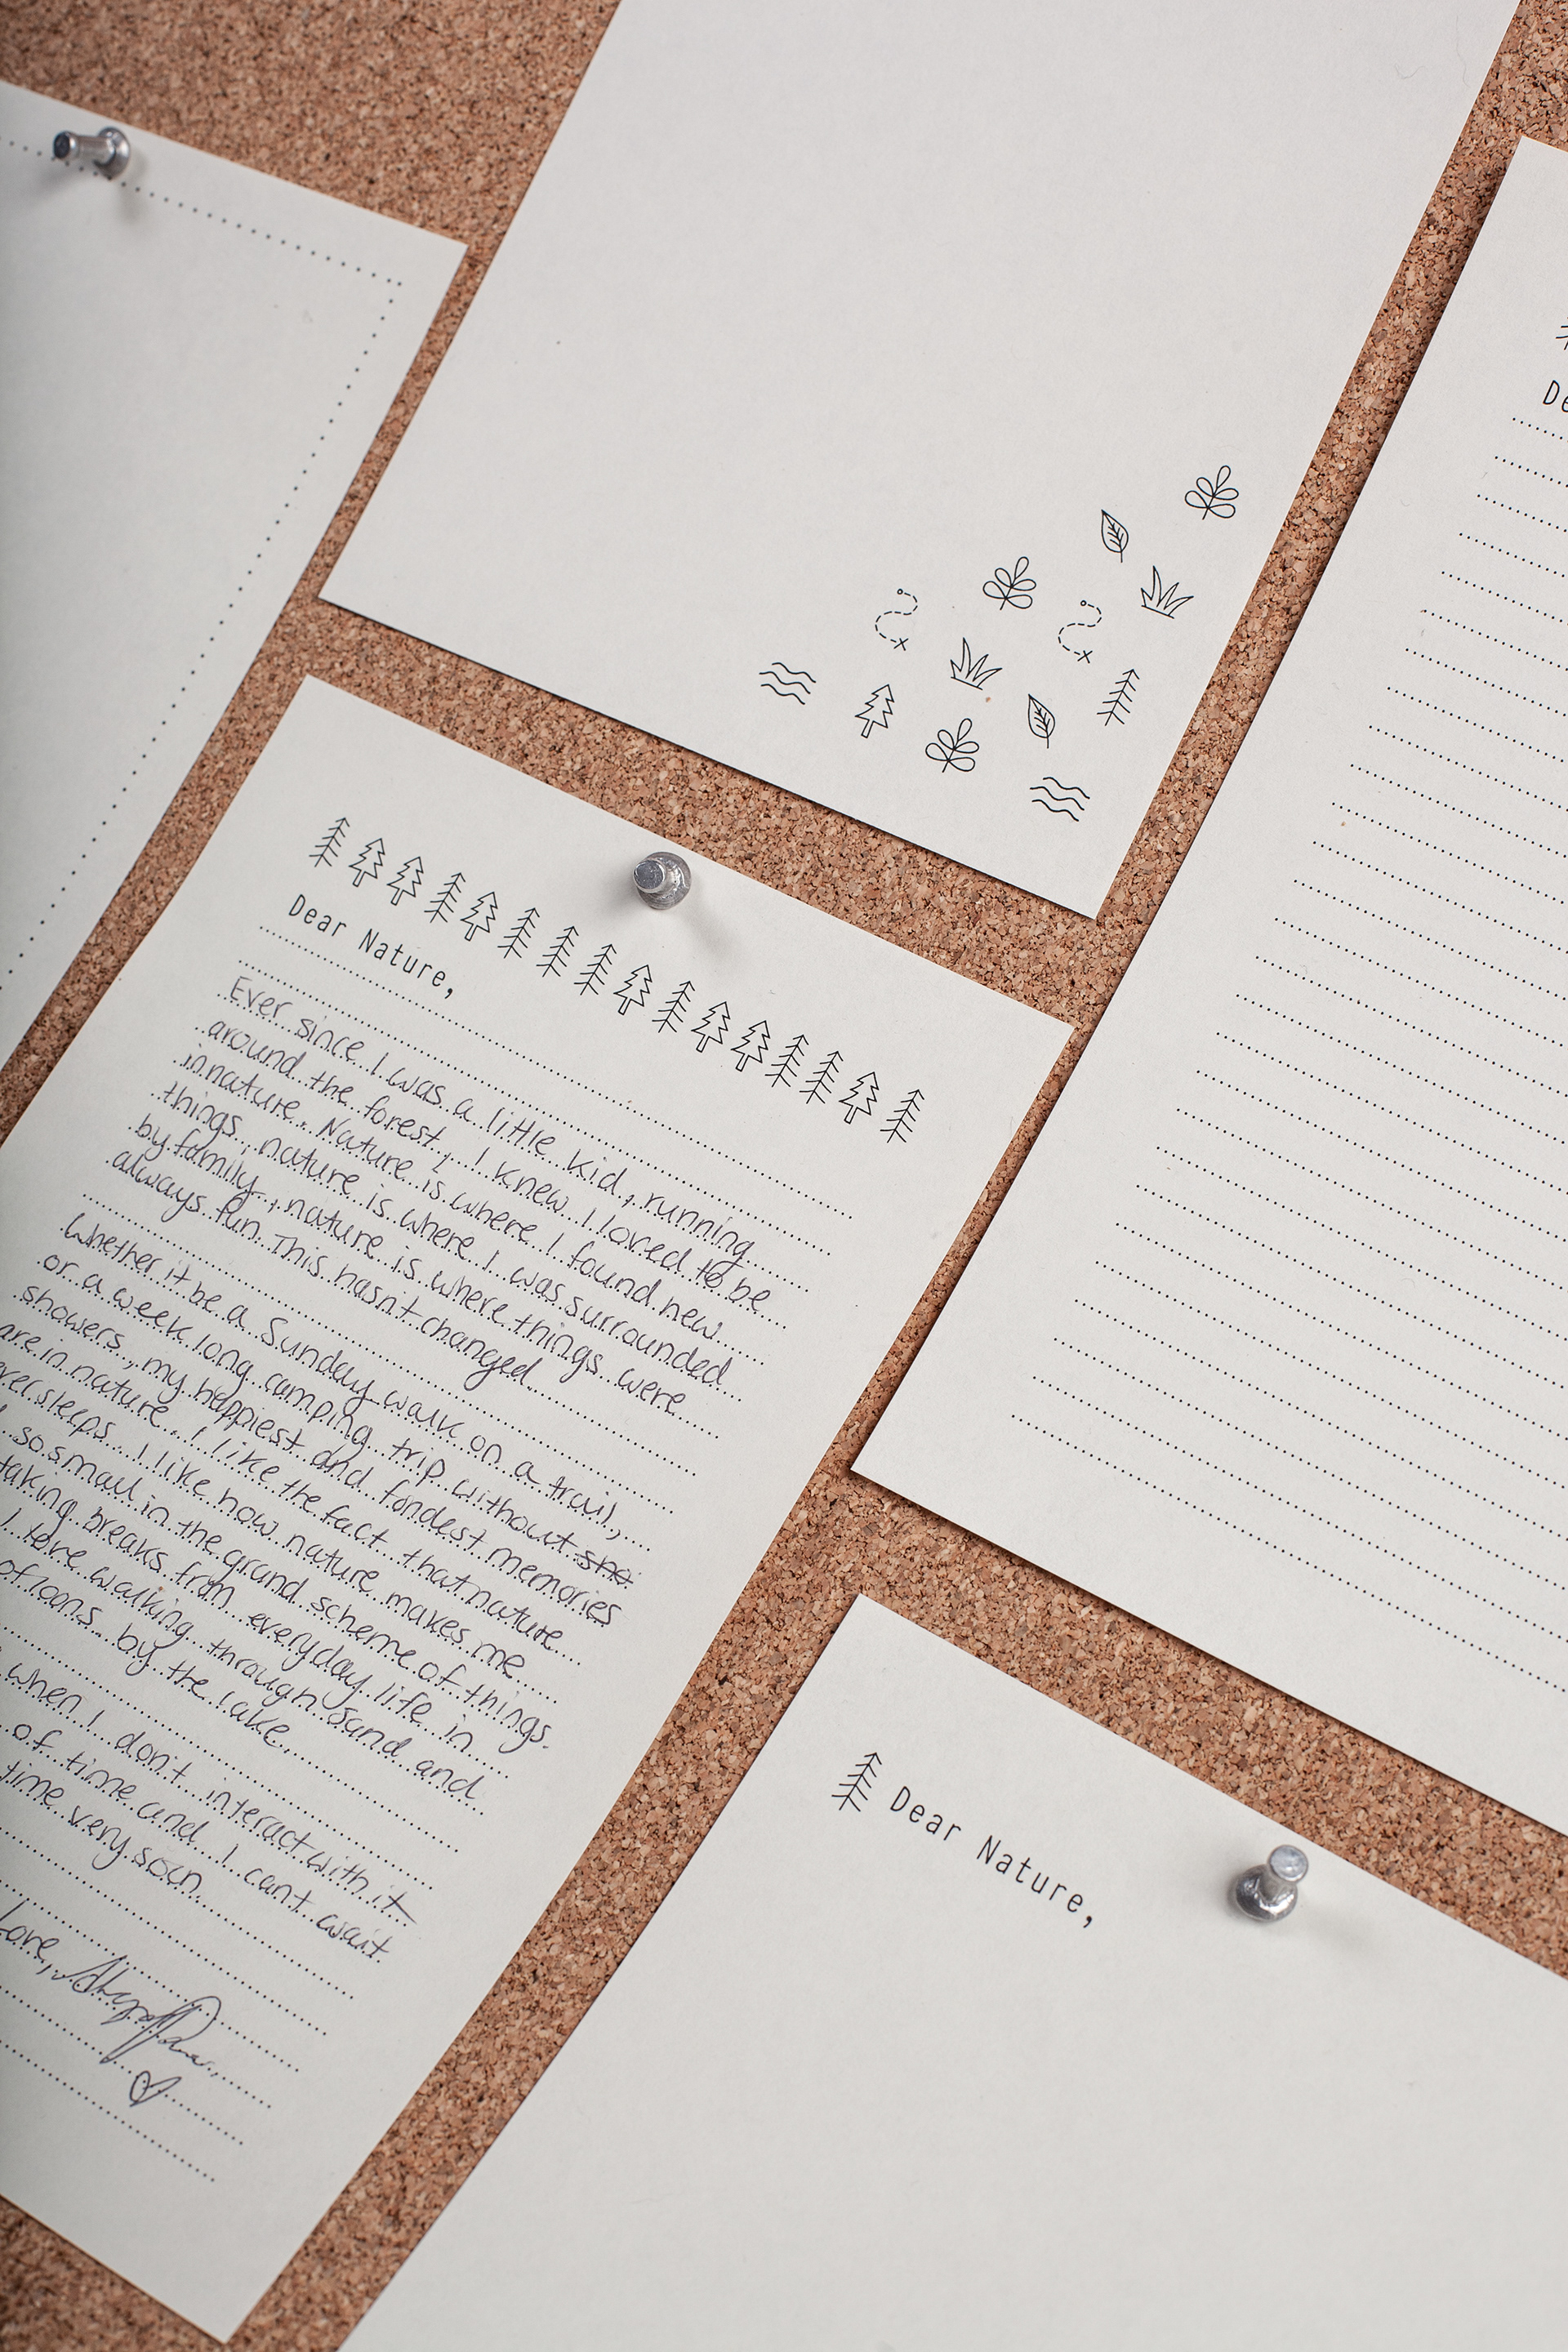 De
Dear Nature,
Ever since I was a little kid, running
around the forest, I knew I loved to be
in nature. Nature is where I found new
things, nature is where I was surrounded
by family, nature is where things were
always fun. This hasn't changed.
Whether it be a Sunday walk on a trail,
or a week long camping trip without sho
showers, my happiest and fondest memories
are in nature. I like the fact that nature
ver sleeps. I like how nature makes me
so small in the grand scheme of things.
taking breaks from everyday life in
I love walking through sand and
of loons by the lake.
when I don't interact with it
of time and I can't wait
time very soon.
Love,
Dear Nature,